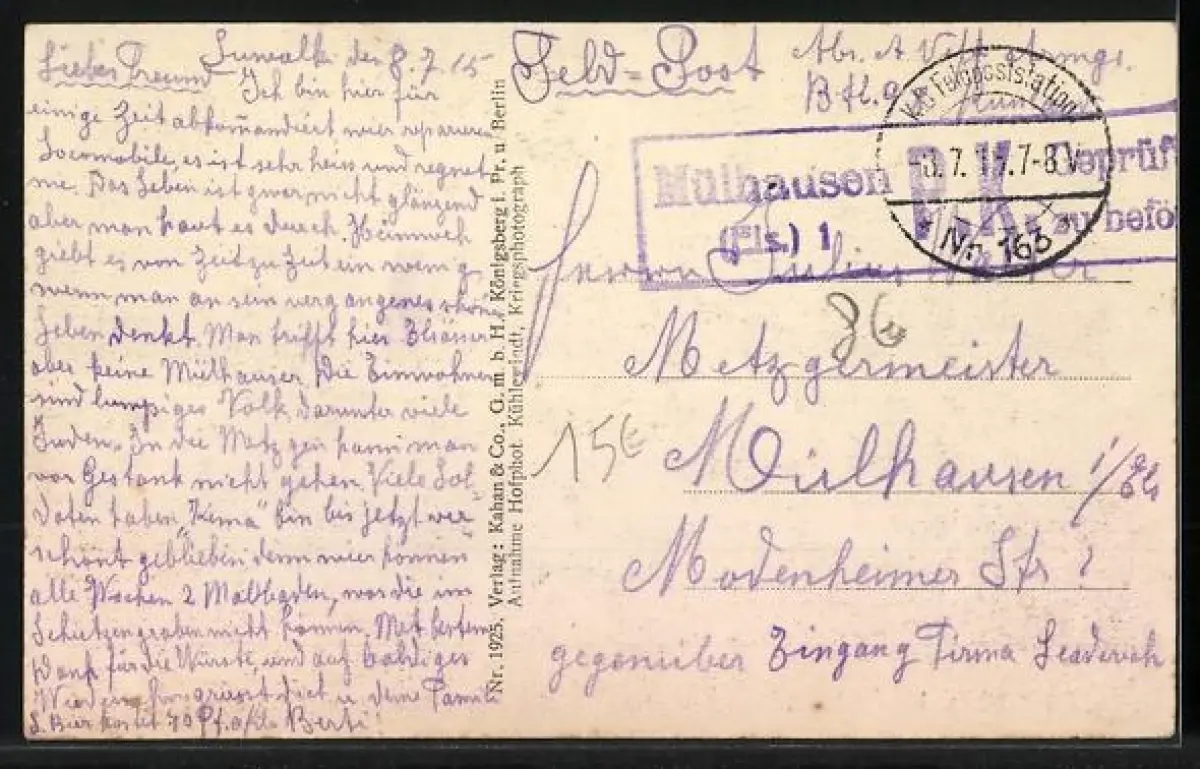 Suwalk den 8.7.15
Lieber Freund
Ich bin hier für
einige Zeit abkommandiert wier reparieren
Locomobile, es ist sehr heiss und regnet
nie. Das Leben ist zwar nicht glänzend
aber man haut es durch. Heimweh
giebt es von Zeit zu Zeit ein wenig
wenn man an sein vergangenes schöne
Leben denkt. Man trifft hier Elsässer
aber keine Mülhauser. Die Einwohner
sind lumpiges Volk, darunter viele
Juden. In die Metzgen kann man
vor Gestank nicht gehen. Viele Sol
daten haben bin bis jetzt ver
schönt geblieben, denn wier können
alle Wochen 2 Mal baden, was die im
Schützengraben nicht können. Mit bestem
Dank für die Würste, und auf baldiges
grüsst dich u. deine Famili
Bier kostet 70 Pf.
Nr. 1925. Verlag: Kahan & Co., G. m. b. H., Königsberg i. Pr. u. Berlin
Aufnahme Hofphot. Kühlewindt, Kriegsphotograph
Feld=Post
Abs. A.
Btl. 9
K.D. Feldpoststation
7-8 V
* Nr. 163 *
Mülhausen
(Els.) 1
P.K.
Geprüft
zu beför
Herrn
86
Metzgermeister
15€
Mülhausen i/Els
Modenheimer Str 1
gegenüber Eingang Firma